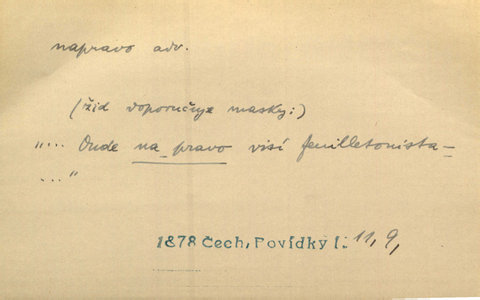 napravo adv.
(žid doporučuje masky:)
"... Onde na pravo visí feuilletonista –
..."
1878 Čech, Povídky I. 11, 9,